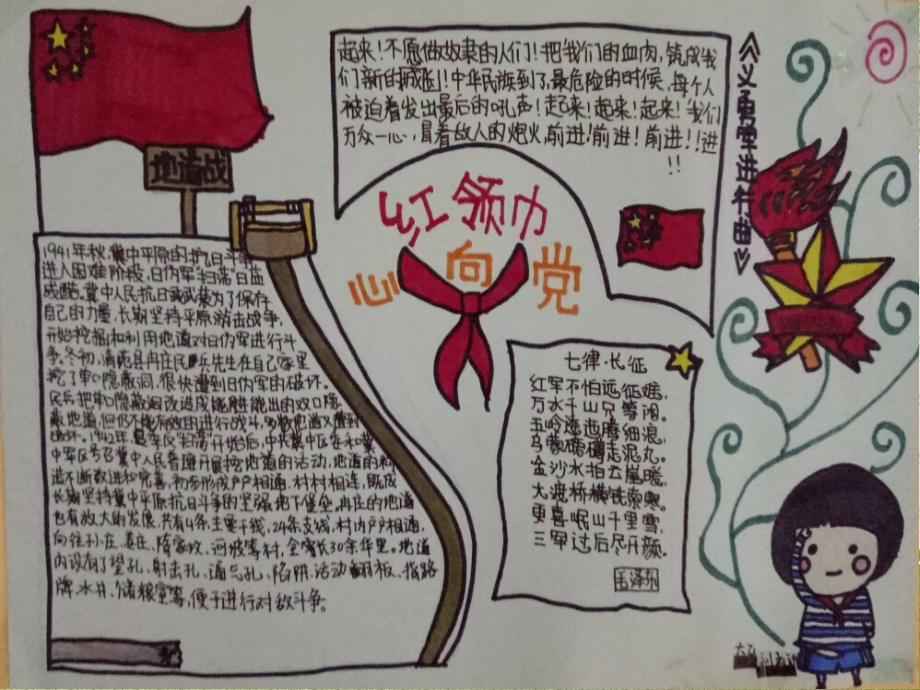 起来！不愿做奴隶的人们！把我们的血肉，筑成我
们新的长城！中华民族到了，最危险的时候，每个人
被迫着发出最后的吼声！起来！起来！起来！我们
万众一心，冒着敌人的炮火，前进！前进！前进！！进
！！
《义勇军进行曲》
地道战
红领巾
心向党
1941年秋，冀中平原的抗日斗争
进入困难阶段，日伪军"扫荡"日益
残酷。冀中人民抗日武装为了保存
自己的力量，长期坚持平原游击战争，
开始挖掘和利用地道对日伪军进行斗
争。冬初，清苑县冉庄民兵先生在自己家里
挖了单口隐蔽洞，很快遭到日伪军的破坏。
民兵把单口隐蔽洞改造成能进能出的双口隐
蔽地道，但仍不能有效的进行战斗，多数地道又遭到
破坏。1942年夏季反"扫荡"开始后，中共冀中区委和冀
中军区号召冀中人民普遍开展挖地道的活动，地道的构
造不断改进和完善，初步形成户户相通，村村相连，既成
长期坚持冀中平原抗日斗争的坚强地下堡垒，冉庄的地道
也有放大的发展，共有4条主要干线，24条支线，村内户户相通，
向往孙庄、姜庄、隋家坟、河坡等村，全穿长30余华里。地道
内设有了望孔、射击孔、通气孔、陷阱、活动翻板、指路
牌、水井、储粮室等，便于进行对敌斗争。
七律·长征
红军不怕远征难，
万水千山只等闲。
五岭逶迤腾细浪，
乌蒙磅礴走泥丸。
金沙水拍云崖暖，
大渡桥横铁索寒。
更喜岷山千里雪，
三军过后尽开颜。
毛泽东